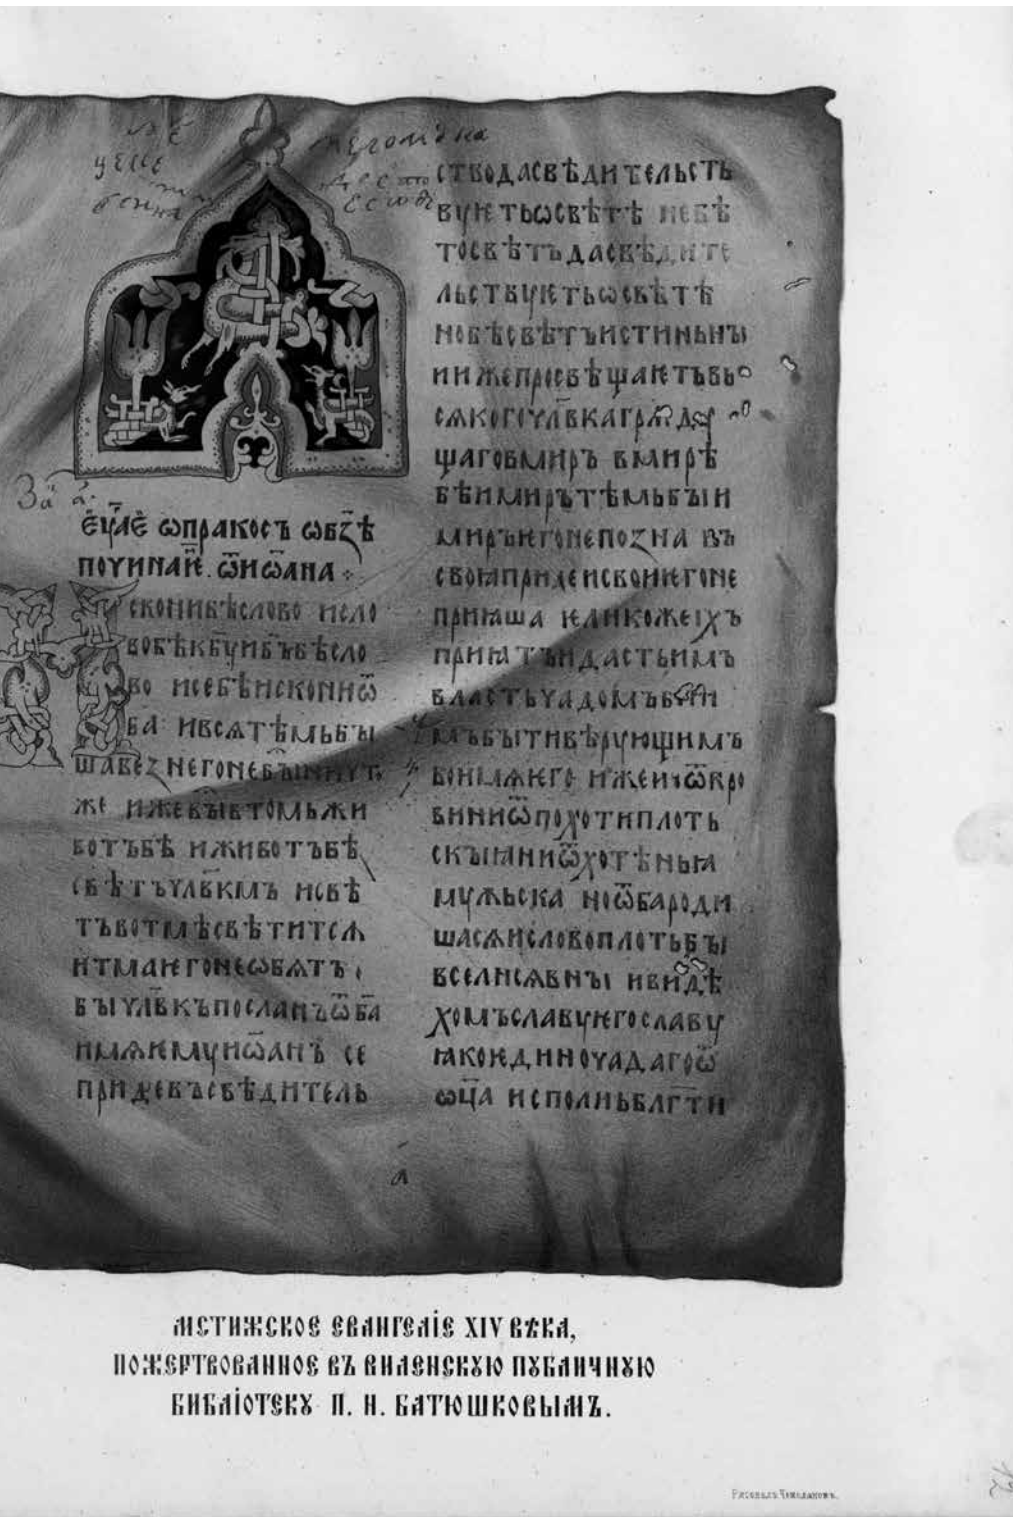 За҃ а҃.
еѵⷢ҇лⷷ҇ ѡпракосъ ѡвꙁѣ
почина
ѿиѡана
сконибѣслово исло
вобѣкб҃уиб҃ъбѣсло
во исебѣискониѿ
ба҃ ивсѧтѣмьбы
шавеꙁнегоне
же ижебывтомьжи
вотъбѣ иживотъбѣ
свѣтъчл҃вкмъ исвѣ
тъвотмѣсвѣтитсѧ
итмаѥгонеѡбѧтъ
быичл҃вкъпосланъѿба҃
имѧѥмуиѡанъ се
придевъсвѣдитель
стводасвѣдительсть
вуѥтьѡсвѣтѣ небѣ
тосвѣтъдасвѣдите
льствуѥтьѡсвѣтѣ
нобѣсвѣтъистиньны
иижепросвѣщаѥтьвь
сѧкогочл҃вкагрѧду
щаговмиръ вмирѣ
бѣимирътѣмьбыи
миръѥгонепоꙁна въ
своꙗпридеисвоиѥгоне
приꙗша ѥликожеіхъ
приꙗтъидастьимъ
властьчадомъб҃жи
мъбытивѣрующимъ
воимѧѥго ижениѿкро
виниѿпохотиплоть
скыꙗниѿхотѣньꙗ
мужьска ноѿбароди
шасѧисловоплотьбы
вселисѧвны ивидѣ
хомъславуѥгославу
ꙗкоѥдиночадагоѿ
ѡц҃а исполньблгⷣти
МСТИЖСКОЕ ЕВАНГЕЛІЕ XIV ВѢКА,
ПОЖЕРТВОВАННОЕ ВЪ ВИЛЕНСКУЮ ПУБЛИЧНУЮ
БИБЛІОТЕКУ П. Н. БАТЮШКОВЫМЪ.
Рисовалъ Чемодановъ.